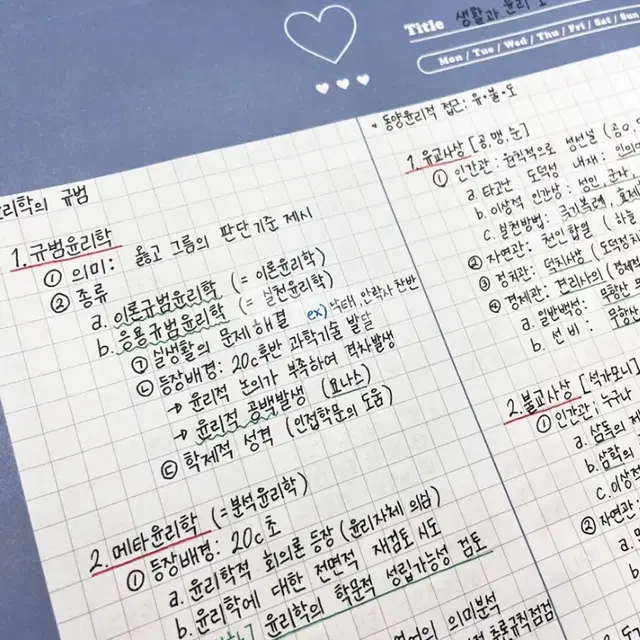 Title 생활과 윤리
Mon / Tue / Wed / Thu / Fri / Sat / Sun
윤리학의 규범
1. 규범윤리학
① 의미: 옳고 그름의 판단기준 제시
② 종류
a. 이론규범윤리학 (= 이론윤리학)
b. 응용규범윤리학 (= 실천윤리학)
㉠ 실생활의 문제해결 ex) 낙태, 안락사 찬반
㉡ 등장배경: 20c후반 과학기술 발달
→ 윤리적 논의가 부족하여 격차발생
→ 윤리적 공백발생 (요나스)
㉢ 학제적 성격 (인접학문의 도움)
2. 메타윤리학 (=분석윤리학)
① 등장배경: 20c초
a. 윤리학적 회의론 등장 (윤리자체 의심)
b. 윤리학에 대한 전면적 재검토 시도
] 윤리학의 학문적 성립가능성 검토
의 의미분석
추론규칙점검
• 동양윤리적 접근: 유·불·도
1. 유교사상 [공, 맹, 순]
① 인간관: 원칙적으로 성선설 (공
a. 타고난 도덕성 내재:
b. 이상적 인간상: 성인, 군자,
c. 실천방법: 극기복례,
② 자연관: 천인합일
③ 정치관: 덕치사상
④ 경제관: 견리사의
a. 일반백성: 무항산
b. 선비: 무항산
2. 불교사상 [석가모니]
① 인간관: 누구나
a. 삼독의 제
b. 삼학의
c. 이상
② 자연관
a.
b.